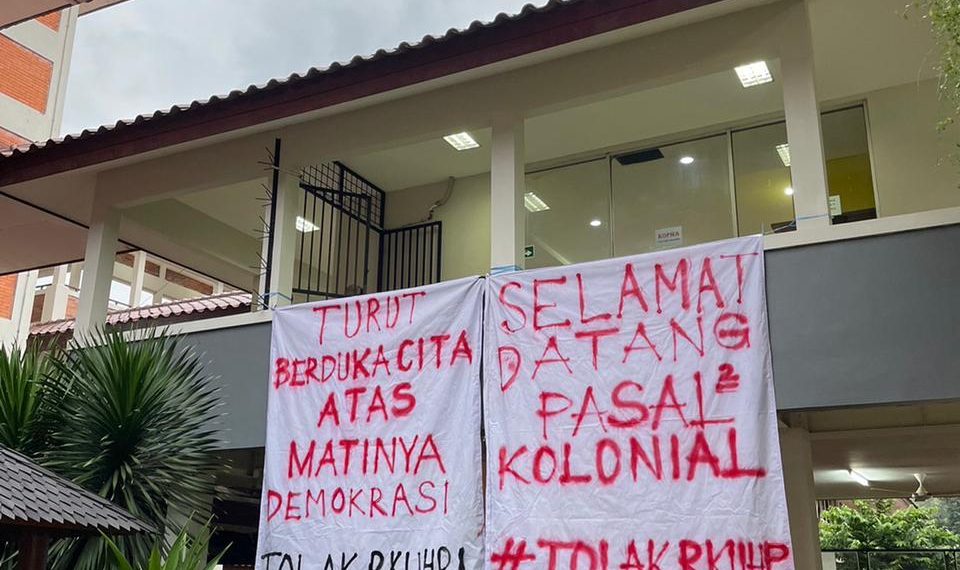 TURUT
BERDUKACITA
ATAS
MATINYA
DEMOKRASI
TOLAK RKUHP!
SELAMAT
DATANG
PASAL²
KOLONIAL
#TOLAKRKUHP
KOPMA